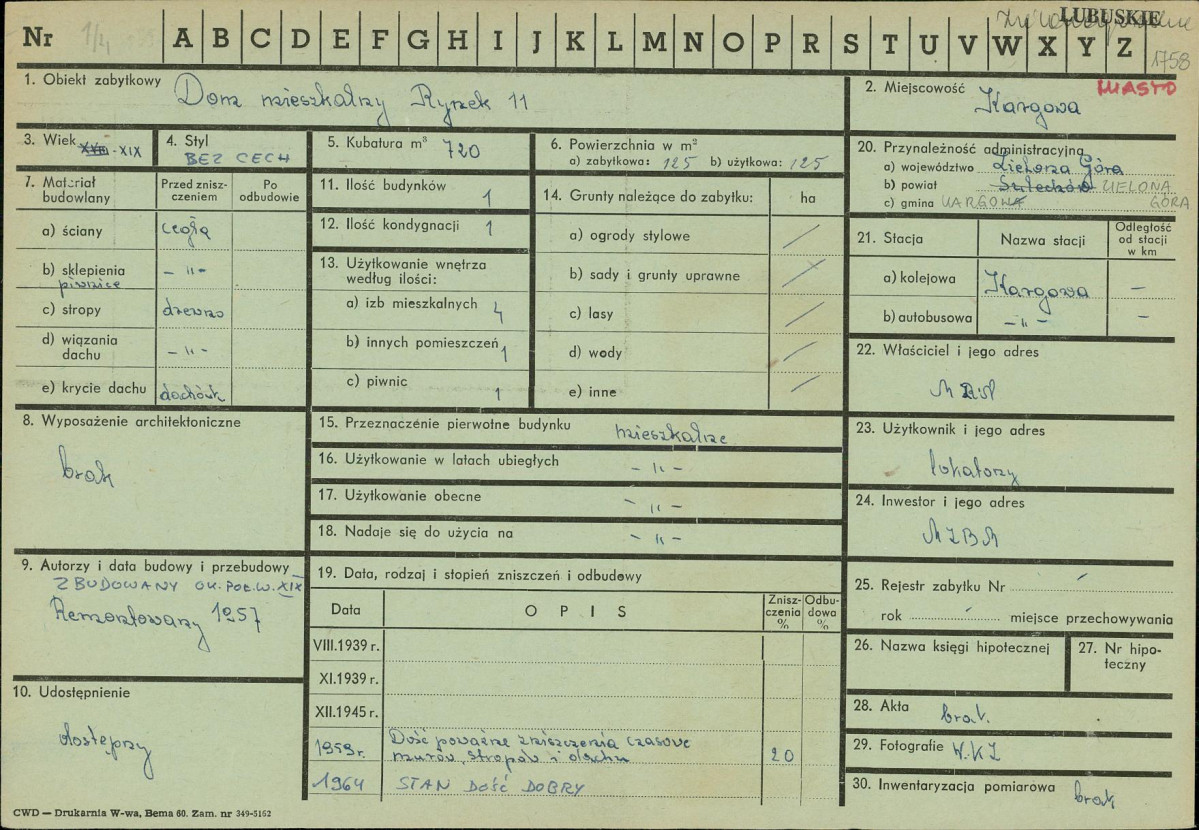 LUBUSKIE
Nr 1/4 A B C D E F G H I J K L M N O P R S T U V W X Y Z
1758
1. Obiekt zabytkowy Dom mieszkalny Rynek 11
2. Miejscowość Kargowa
MIASTO
3. Wiek XVIII-XIX
4. Styl
BEZ CECH
5. Kubatura m³ 720
6. Powierzchnia w m²
a) zabytkowa: 125 b) użytkowa: 125
7. Materiał budowlany
Przed zniszczeniem
Po odbudowie
a) ściany cegła
b) sklepienia piwnice -"-
c) stropy drewno
d) wiązania dachu -"-
e) krycie dachu dachówk
8. Wyposażenie architektoniczne
brak
9. Autorzy i data budowy i przebudowy
ZBUDOWANY OK. POŁ. W. XIX
Remontowany 1957
10. Udostępnienie
dostępny
11. Ilość budynków 1
12. Ilość kondygnacji 1
13. Użytkowanie wnętrza
według ilości:
a) izb mieszkalnych 4
b) innych pomieszczeń 1
c) piwnic 1
14. Grunty należące do zabytku: ha
a) ogrody stylowe /
b) sady i grunty uprawne /
c) lasy /
d) wody /
e) inne /
15. Przeznaczenie pierwotne budynku mieszkalne
16. Użytkowanie w latach ubiegłych -"-
17. Użytkowanie obecne -"-
18. Nadaje się do użycia na -"-
19. Data, rodzaj i stopień zniszczeń i odbudowy
Data OPIS Zniszczenia % Odbudowa %
VIII.1939 r.
XI.1939 r.
XII.1945 r.
1959 r. Dość poważne zniszczenia czasowe
murów, stropów i dachu 20
1964 STAN DOŚĆ DOBRY
20. Przynależność administracyjna
a) województwo Zielona Góra
b) powiat Sulechów ZIELONA
c) gmina KARGOWA GÓRA
21. Stacja Nazwa stacji Odległość od stacji w km
a) kolejowa Kargowa —
b) autobusowa -"- —
22. Właściciel i jego adres
23. Użytkownik i jego adres
lokatorzy
24. Inwestor i jego adres
MZBM
25. Rejestr zabytku Nr /
rok / miejsce przechowywania
26. Nazwa księgi hipotecznej
27. Nr hipoteczny
28. Akta brak.
29. Fotografie W.K.Z
30. Inwentaryzacja pomiarowa brak
CWD — Drukarnia W-wa, Bema 60. Zam. nr 349-5162